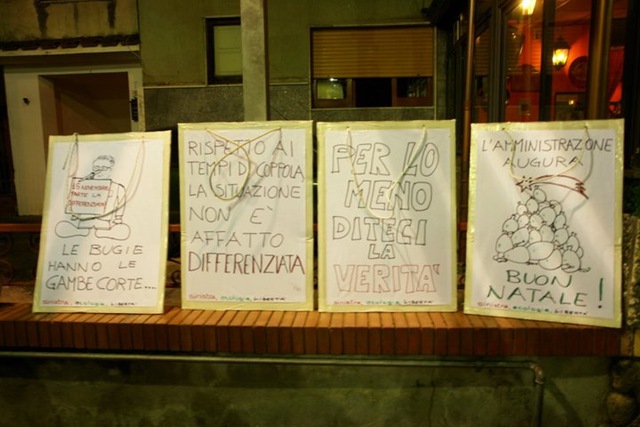 15 NOVEMBRE
PARTE LA
DIFFERENZIATA
LE BUGIE
HANNO LE
GAMBE CORTE...
sinistra, ecologia, LIBERTA'
RISPETTO AI
TEMPI DI COPPOLA
LA SITUAZIONE
NON E
AFFATTO
DIFFERENZIATA
sinistra, ecologia, LIBERTA'
PER LO
MENO
DITECI
LA
VERITA'
sinistra, ecologia, LIBERTA'
L'AMMINISTRAZIONE
AUGURA
BUON
NATALE!
sinistra, ecologia, LIBERTA'